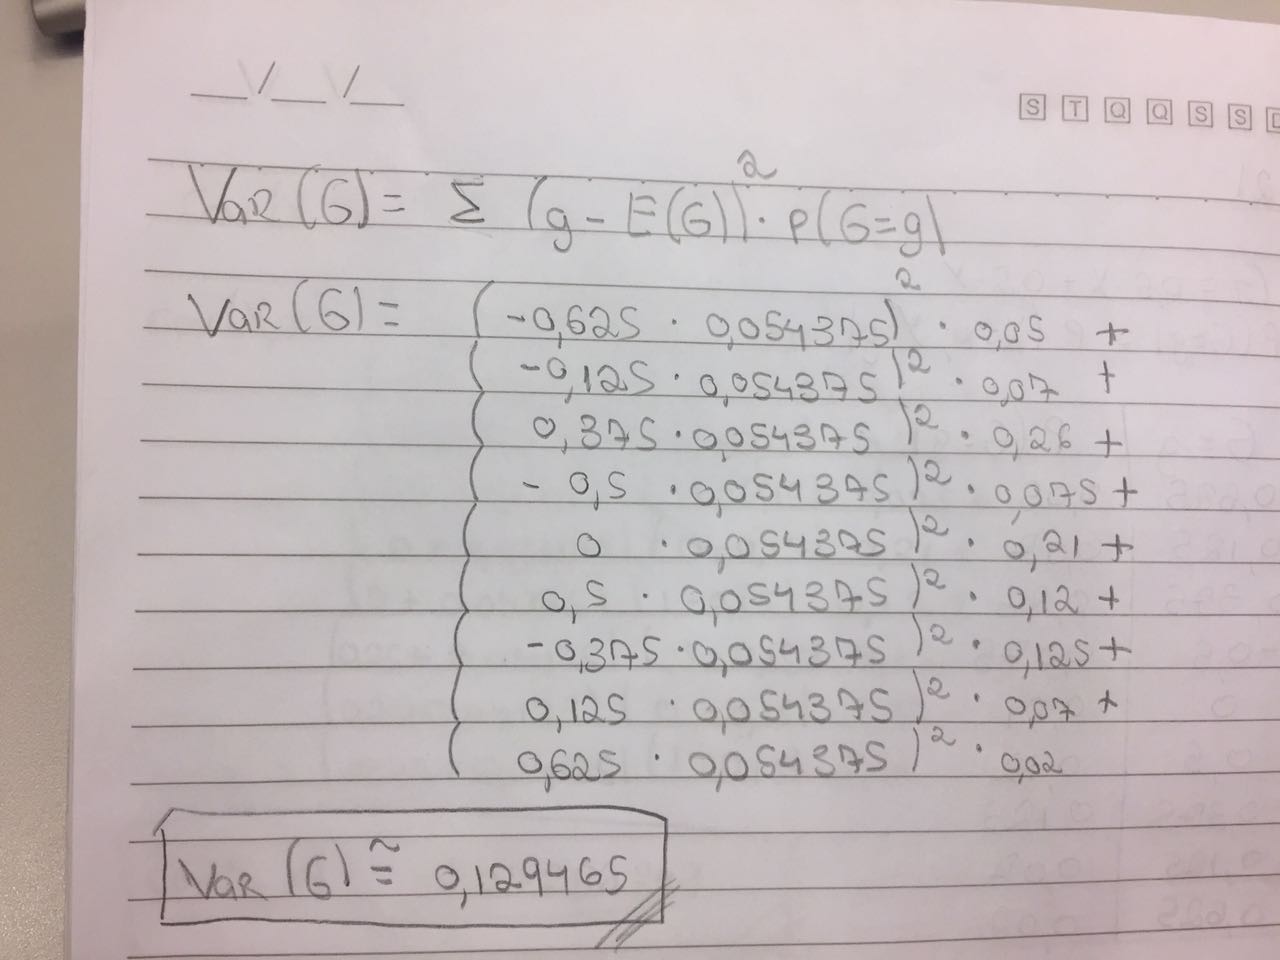 __/__/__
S T Q Q S S D
Var(G) = Σ (g - E(G))² · p(G=g)
Var(G) = (-0,625 · 0,054375)² · 0,05 +
(-0,125 · 0,054375)² · 0,07 +
(0,375 · 0,054375)² · 0,26 +
(-0,5 · 0,054375)² · 0,075 +
(0 · 0,054375)² · 0,21 +
(0,5 · 0,054375)² · 0,12 +
(-0,375 · 0,054375)² · 0,125 +
(0,125 · 0,054375)² · 0,07 +
(0,625 · 0,054375)² · 0,02
Var(G) ≅ 0,129465